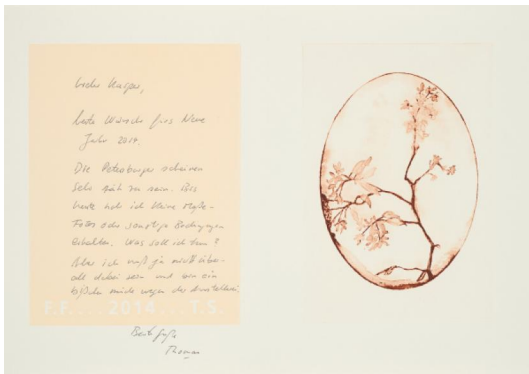 Lieber Kasper,
beste Wünsche fürs Neue
Jahr 2014.
Die Petersburger scheinen
sehr zäh zu sein. Bis
heute hab ich keine
Fotos oder sonstige Bedingungen
erhalten. Was soll ich tun?
Aber ich muß ja nicht über-
all dabei sein und bin ein
bißchen müde wegen der
F.F. ... 2014 ... T.S.
Beste Grüße
Thomas